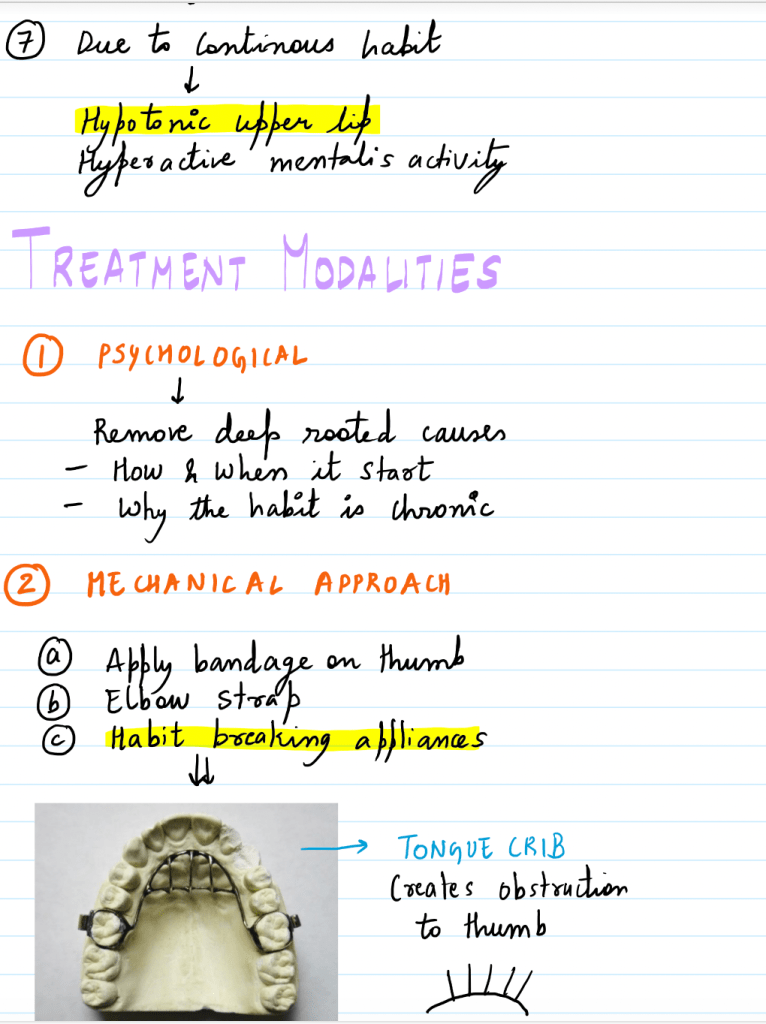 ⑦ Due to Continous habit
↓
Hypotonic upper lip
Hyperactive mentalis activity
TREATMENT MODALITIES
① PSYCHOLOGICAL
↓
Remove deep rooted causes
- How & when it start
- Why the habit is chronic
② MECHANICAL APPROACH
ⓐ Apply bandage on thumb
ⓑ Elbow strap
ⓒ Habit breaking appliances
⇓
→ TONGUE CRIB
Creates obstruction
to thumb